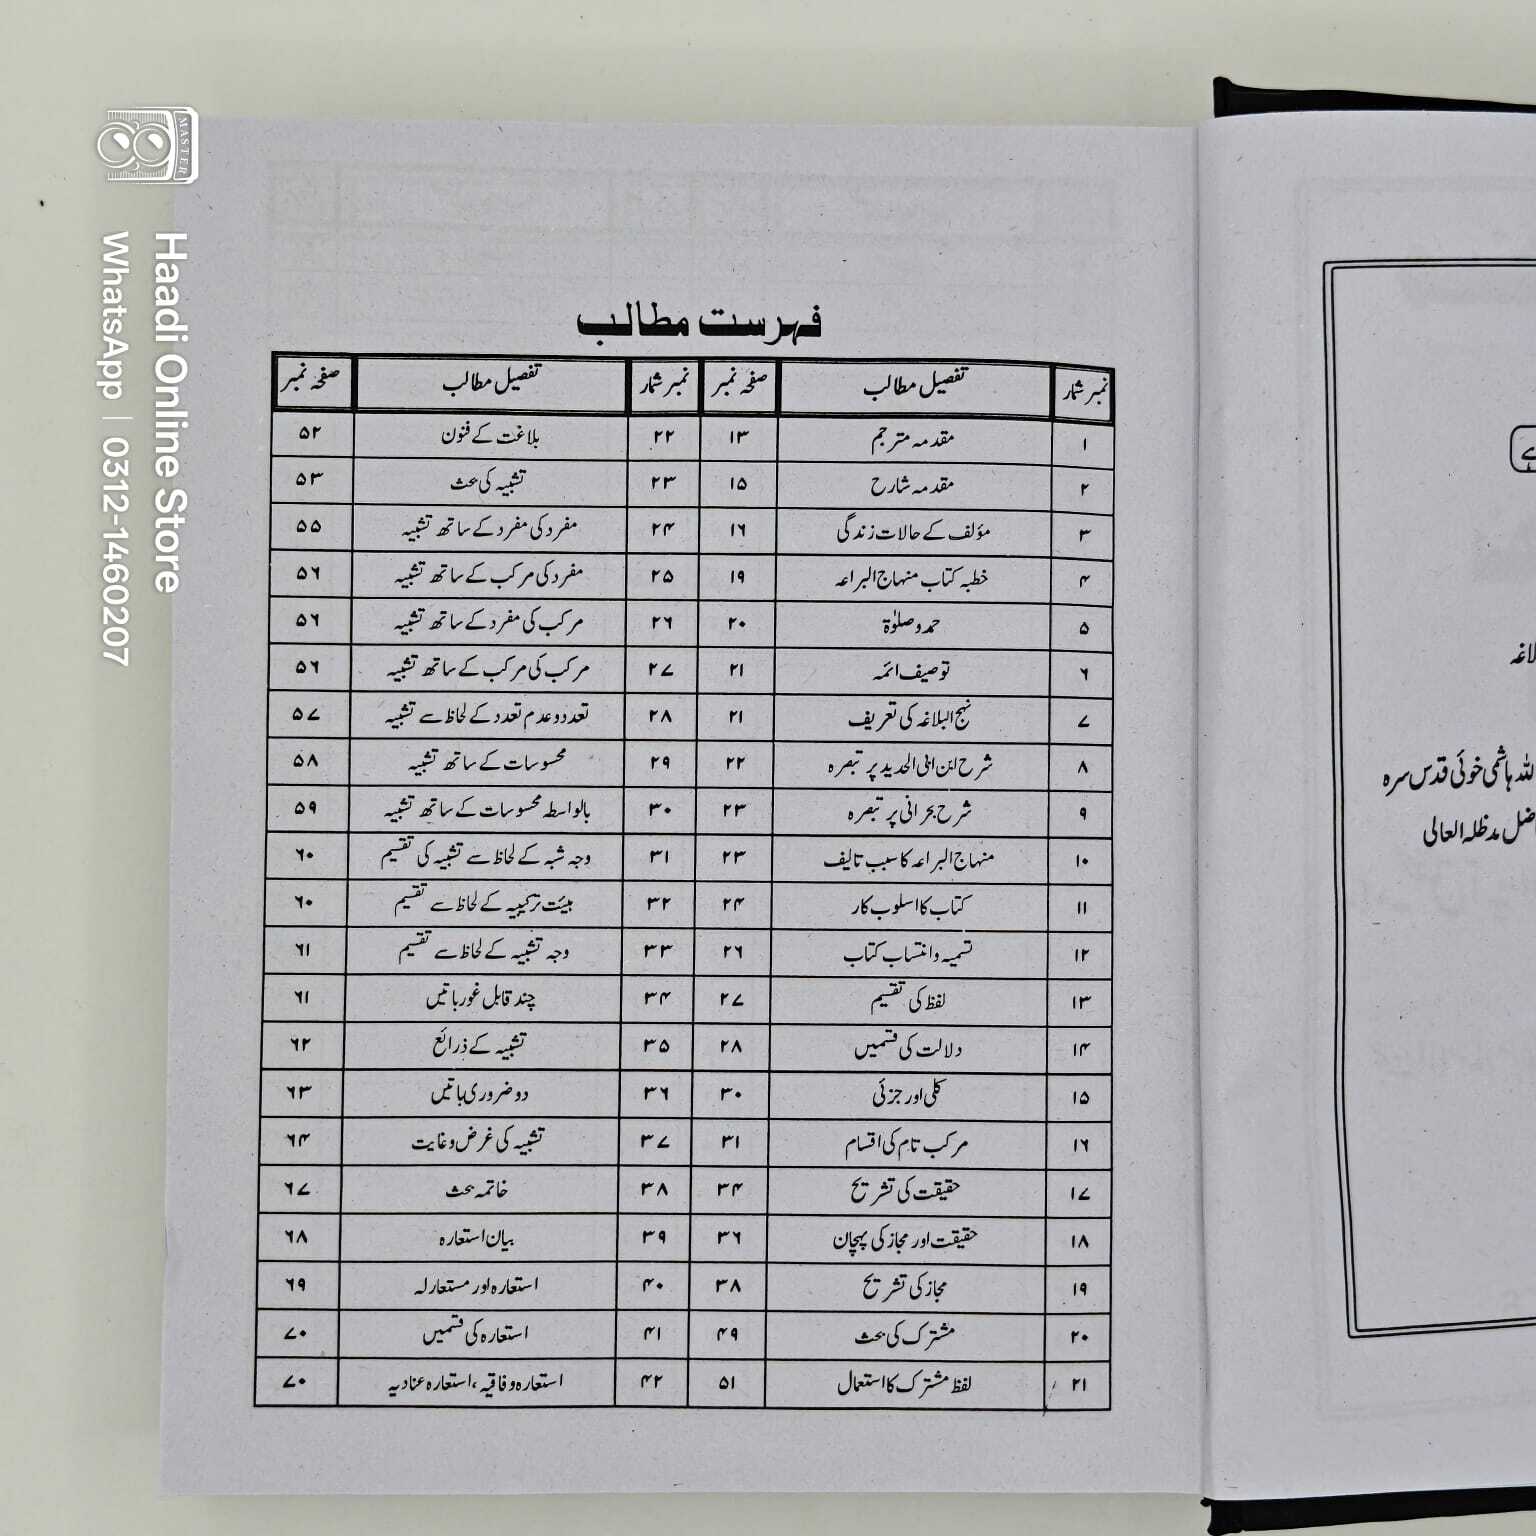 فہرست مطالب
نمبر شمار تفصیل مطالب صفحہ نمبر نمبر شمار تفصیل مطالب صفحہ نمبر
۱ مقدمہ مترجم ۱۳ ۲۲ بلاغت کے فنون ۵۲
۲ مقدمہ شارح ۱۵ ۲۳ تشبیہ کی بحث ۵۳
۳ مؤلف کے حالات زندگی ۱۶ ۲۴ مفرد کی مفرد کے ساتھ تشبیہ ۵۵
۴ خطبہ کتاب منہاج البراعہ ۱۹ ۲۵ مفرد کی مرکب کے ساتھ تشبیہ ۵۶
۵ حمد و صلوٰۃ ۲۰ ۲۶ مرکب کی مفرد کے ساتھ تشبیہ ۵۶
۶ توصیف ائمہ ۲۱ ۲۷ مرکب کی مرکب کے ساتھ تشبیہ ۵۶
۷ نہج البلاغہ کی تعریف ۲۱ ۲۸ تعدد و عدم تعدد کے لحاظ سے تشبیہ ۵۷
۸ شرح ابن ابی الحدید پر تبصرہ ۲۲ ۲۹ محسوسات کے ساتھ تشبیہ ۵۸
۹ شرح بحرانی پر تبصرہ ۲۳ ۳۰ بالواسطہ محسوسات کے ساتھ تشبیہ ۵۹
۱۰ منہاج البراعہ کا سبب تالیف ۲۳ ۳۱ وجہ شبہ کے لحاظ سے تشبیہ کی تقسیم ۶۰
۱۱ کتاب کا اسلوب کار ۲۴ ۳۲ ہیئت ترکیبیہ کے لحاظ سے تقسیم ۶۰
۱۲ تسمیہ و انتساب کتاب ۲۶ ۳۳ وجہ تشبیہ کے لحاظ سے تقسیم ۶۱
۱۳ لفظ کی تقسیم ۲۷ ۳۴ چند قابل غور باتیں ۶۱
۱۴ دلالت کی قسمیں ۲۸ ۳۵ تشبیہ کے ذرائع ۶۲
۱۵ کلی اور جزئی ۳۰ ۳۶ دو ضروری باتیں ۶۳
۱۶ مرکب تام کی اقسام ۳۱ ۳۷ تشبیہ کی غرض و غایت ۶۴
۱۷ حقیقت کی تشریح ۳۴ ۳۸ خاتمہ بحث ۶۷
۱۸ حقیقت اور مجاز کی پہچان ۳۶ ۳۹ بیان استعارہ ۶۸
۱۹ مجاز کی تشریح ۳۸ ۴۰ استعارہ اور مستعارلہ ۶۹
۲۰ مشترک کی بحث ۴۹ ۴۱ استعارہ کی قسمیں ۷۰
۲۱ لفظ مشترک کا استعمال ۵۱ ۴۲ استعارہ وفاقیہ، استعارہ عنادیہ ۷۰
ہاشمی خوئی قدس سرہ
مدظلہ العالی
MASTER
Haadi Online Store
WhatsApp | 0312-1460207